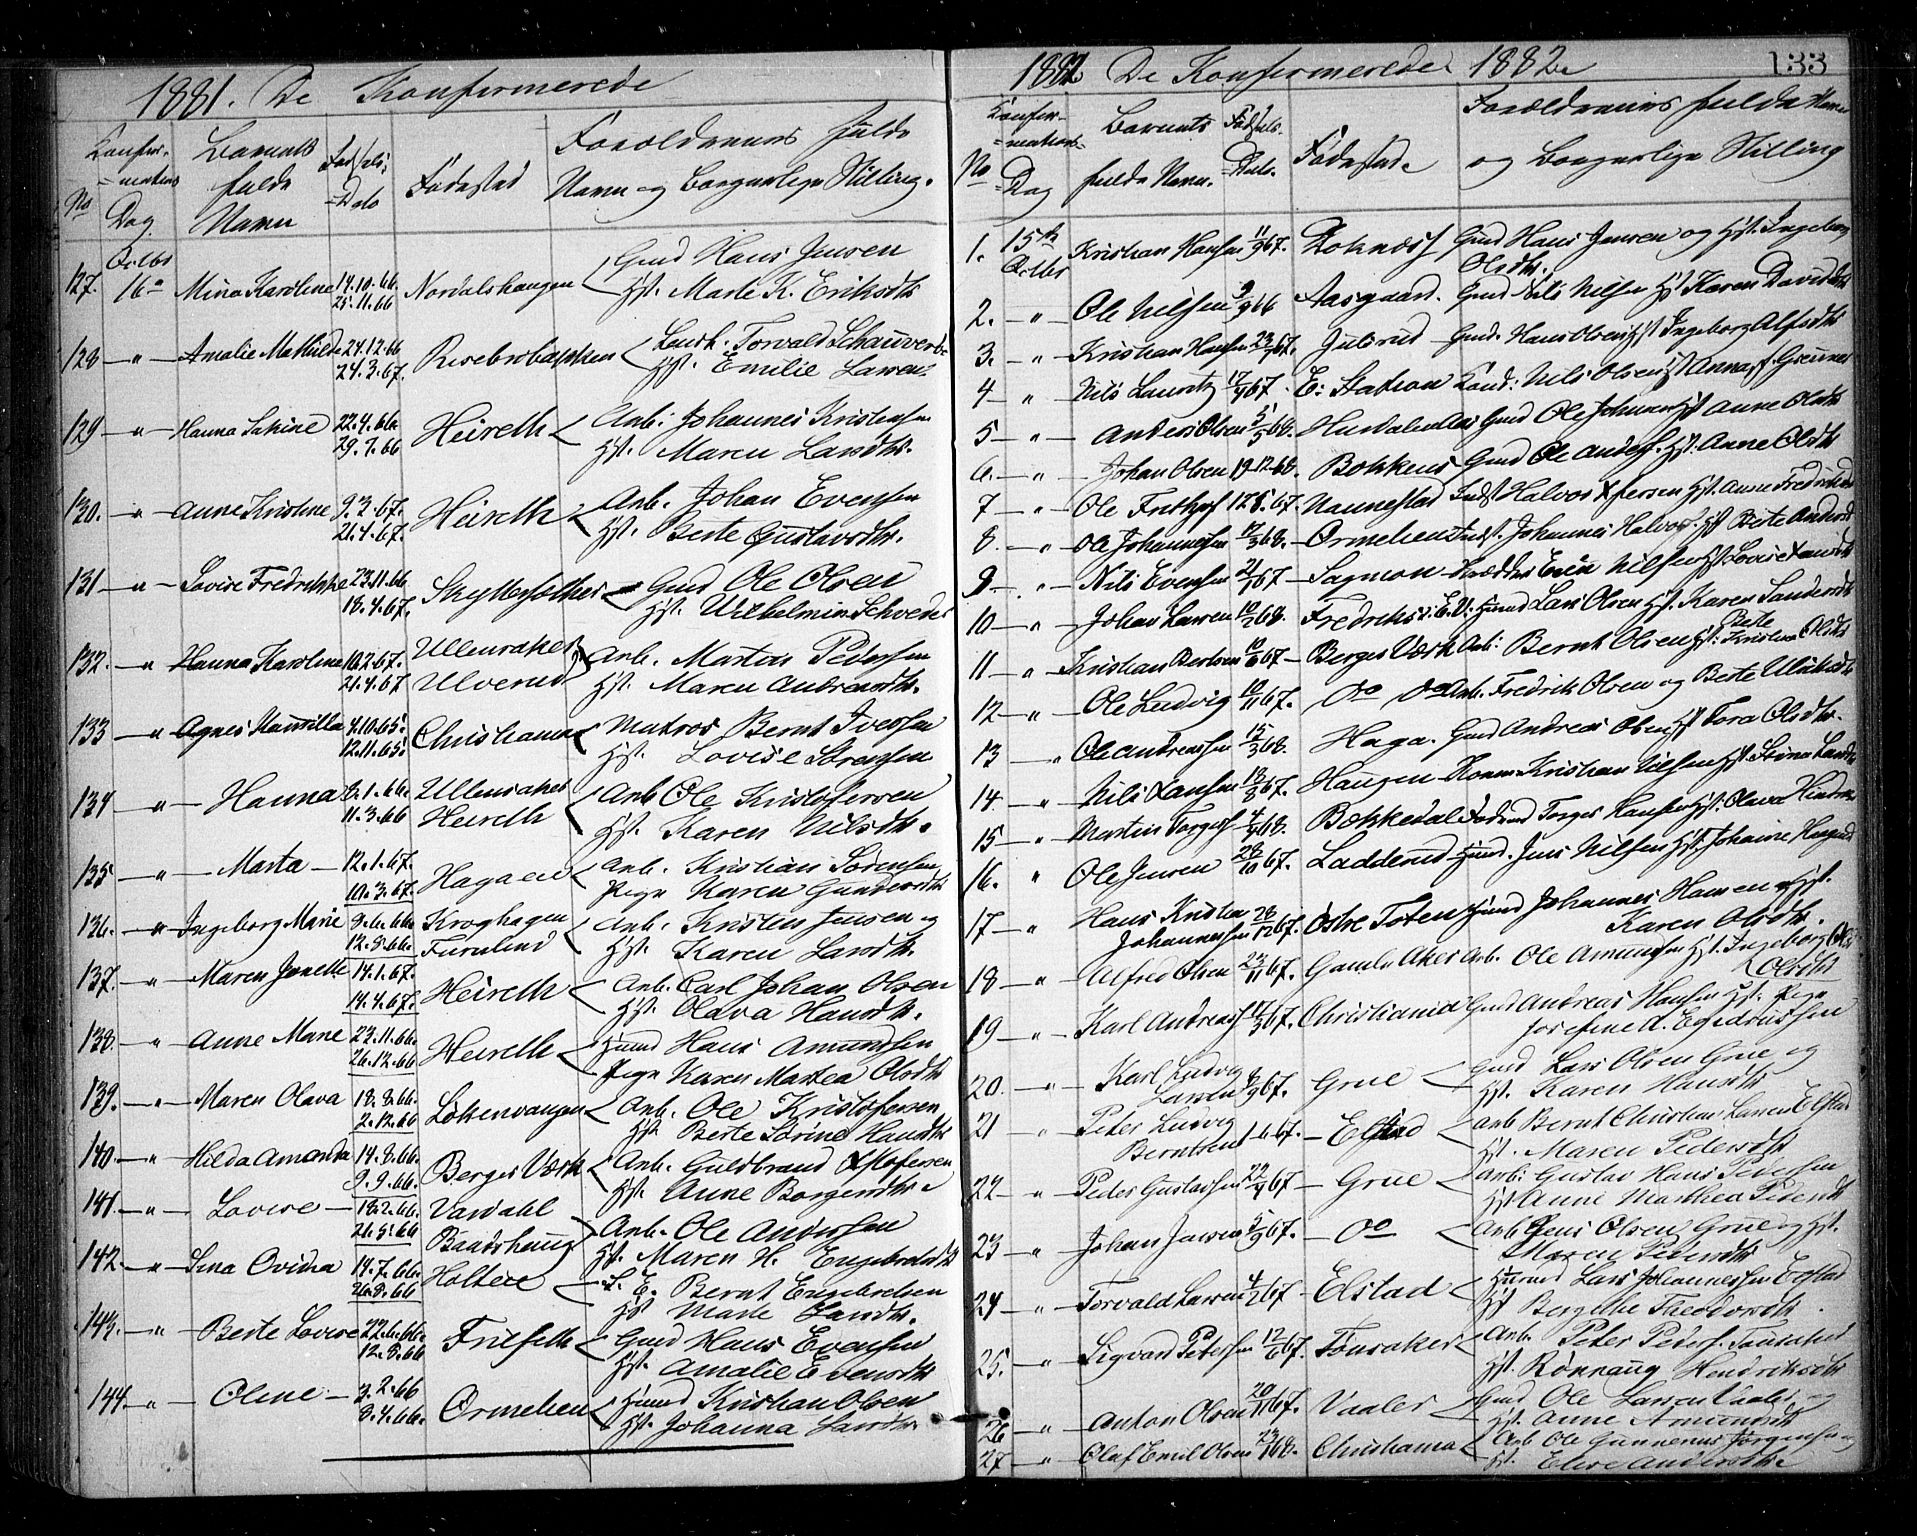 1881. De Konfirmerede
No
Konfir-
=mations
Dag
Barnets
fulde
Navn
Fødsels-
=Dato
Fødested
Forældrenes fulde
Navn og Borgerlige Stilling.
Octbr
127. 16de Mina Karoline 14.10.66. 25.11.66 Nordalshaugen Gmd Hans Jensen
Hst. Marte K. Eriksdtr
128 — " — Amalie Mathilde 24.12.66 24.3.67. Risebrobakken Torvald
Hst. Emilie Larsen
129 — " — Hanna Sabine 22.4.66 29.7.66 Heireth Arb: Johannes Kristensen
Hst. Maren Larsdtr.
130. — " — Anne Kristine 9.2.67. 21.4.67. Heireth Arb. Johan Evensen
Hst. Berte Gustavsdtr.
131 — " — Lovise Fredrikke 23.11.66 18.4.67. Gmd Ole Olsen
Hst. Wilhelmine
132. — " Hanna Karoline 10.2.67. 21.4.67 Ullensaker Ulverud Arb. Martin Pedersen
Hst. Maren Andreasdtr.
133 — " Agnes 4.10.65. 12.11.65. Christiania Matros Bernt Iversen
Hst. Lovise Sørensen
134 " — Hanna 8.1.66. 11.3.66 Ullensaker Heireth Arb Ole Kristofersen
Hst. Karen Nilsdtr.
135 — " — Marta — 12.1.67. 10.3.67. Hagaen Arb. Kristian Sørensen
Pige Karen Gundersdtr
136. — " — Ingeborg Marie 8.6.66. 12.8.66. Kroghagen Furulund Arb. Kristen Jensen og
Hst. Karen Larsdtr
137. — " Maren Janette 14.1.67. 14.4.67. Heireth Arb. Carl Johan Olsen
Hst. Olava Hansdtr.
138. " Anne Marie 23.11.66. 26.12.66 Heireth Hmd Hans Amundsen
Pige Karen Martea Olsdtr
139. — " — Maren Olava 18.8.66. 2.12.66 Løkenvangen Arb. Ole Kristofersen
Hst Berte Sørine Hansdtr
140 — " — Hilda Amanda 14.8.66. 9.9.66. Berger Værk Arb. Guldbrand Xstofersen
Hst. Anne Borgersdtr.
141. — " — Lovise — 18.2.66. 21.5.66 Vardahl Baadshaug Arb. Ole Andersen
Hst. Maren H. Engebretsdtr
142. — " — Lina Ovidia 14.7.66. 26.8.66 Holter S. E. Bernt Engebretsen
Hst Marte Larsdtr.
143. — " — Berte Lovise 22.6.66. 12.8.66 Frilseth Gmd Hans Evensen
Hst. Amalie Evensdtr
144. — " — Oline — 3.2.66 8.4.66. Ormelien Hmd Kristian Olsen
Hst. Johanna Larsdtr
1882 De Konfirmerede 1882. 133
No
Konfir-
mations-
=Dag
Barnets
fulde Navn.
Fødsels-
=Dato.
Fødested.
Forældrenes fulde Navn
og Borgerlige Stilling
1. 15de Octbr Kristian Hansen 11/9 67. Loknæss Gmd Hans Jensen og Hst. Ingeborg
Olsdtr.
2. — " — Ole Nilsen 9/9 66 Aasgaard. Gmd Nils Nilsen Hst Karen Davidsdtr
3. — " — Kristian Hansen 23/9 67. Julsrud Gmd. Hans Olsen Hst Ingeborg Alfsdtr
4 — " — Nils Lauritz 17/9 67. E. Station Kond: Nils Olsen Hst Anna
5 — " — Anders Olsen 5/5 68. Hurdalen Gmd Ole Johnsen Hst Anne Olsdtr
6. — " — Johan Olsen 19.12.68. Bækken Gmd Ole Anders. Hst. Anne Olsdtr
7 — " — Ole Frithjof 12.8.67. Nannestad Indst Halvor Xfersen Hst. Anne Fredriksdtr
8. — " — Ole Johannessen 12/3 68. Ormelien Indst. Johannes Halvors. Hst Berte Andersd
9 — " — Nils Evensen 21/7 67 Sagmoen Skrædder Even Nilsen Hst Lovise
10 — " — Johan Larsen 10/2 68. E.V. Hmd Lars Olsen Hst. Karen
11 — " Kristian Berntsen 10/6 67 — Berger Værk Arb: Bernt Olsen Hst: Berte Kristine Olsdtr
12 — " — Ole Ludvig 10/11 67. Do Do Arb. Fredrik Olsen og Berte
13 — " Ole Andreassen 15/3 68. Haga. Gmd Andreas Olsen Hst Tora Olsdtr.
14 — " Nils 18/3 67. Haugen Kristian Nilsen Hst Stina Larsdtr
15 — " — Martin Torgersen 4/4 68. Bækkedal Torger Hansen Hst. Olava
16. " Ole Jensen 28/10 67. Ladderud Hmd. Jens Nilsen Hst Johanne
17 — " Hans Kristen
Johannessen 28/12 67. Østre Toten Hmd Johannes Hansen og Hst.
Karen Olsdtr.
18 — " Alfred Olsen 23/11 67. Gamle Aker Arb. Ole Amundsen Hst. Ingeborg
Olsdtr
19 — " Karl Andreas 17/3 67. Christiania Gmd Andreas Hansen Hst. Pige
Josefine A.
20. — " — Karl Ludvig
Larsen 8/9 67. Grue Gmd Lars Olsen Grue og
Hst. Karen Hansdtr
21 — " — Peter Ludvig
Berntsen 1.6.67. — Elstad Arb Bernt Christian Larsen Elstad
Hst. Maren Pedersdtr
22 — " Peder Gustavsen 22/4 67 — Grue Arb: Gustav Hans Pedersen
Hst Anne Marthea Pedersdtr
23 — " Johan Jensen 5/9 67. — Do Arb Jens Olsen Grue og Hst.
Maren Pedersdtr
24 — " Torvald Larsen 4/2 67 — Elstad Hmd Lars Johannessen Elstad
Hst Bergithe Theodorsdtr.
25. — " Sigvard Petersen 12/6 67. Tønsaker Arb. Peter Peders.
Hst. Rønnaug Hendriksdtr
26 — " Anton Olsen 20/11 67. Vaaler Gmd Ole Larsen Vaaler og
Hst. Anne Amundsdtr
27 — " — Olaf Emil Olsen 23/1 68. Christiania Arb Ole Gunnerius Jørgensen og
Hst. Elise Andersdtr.